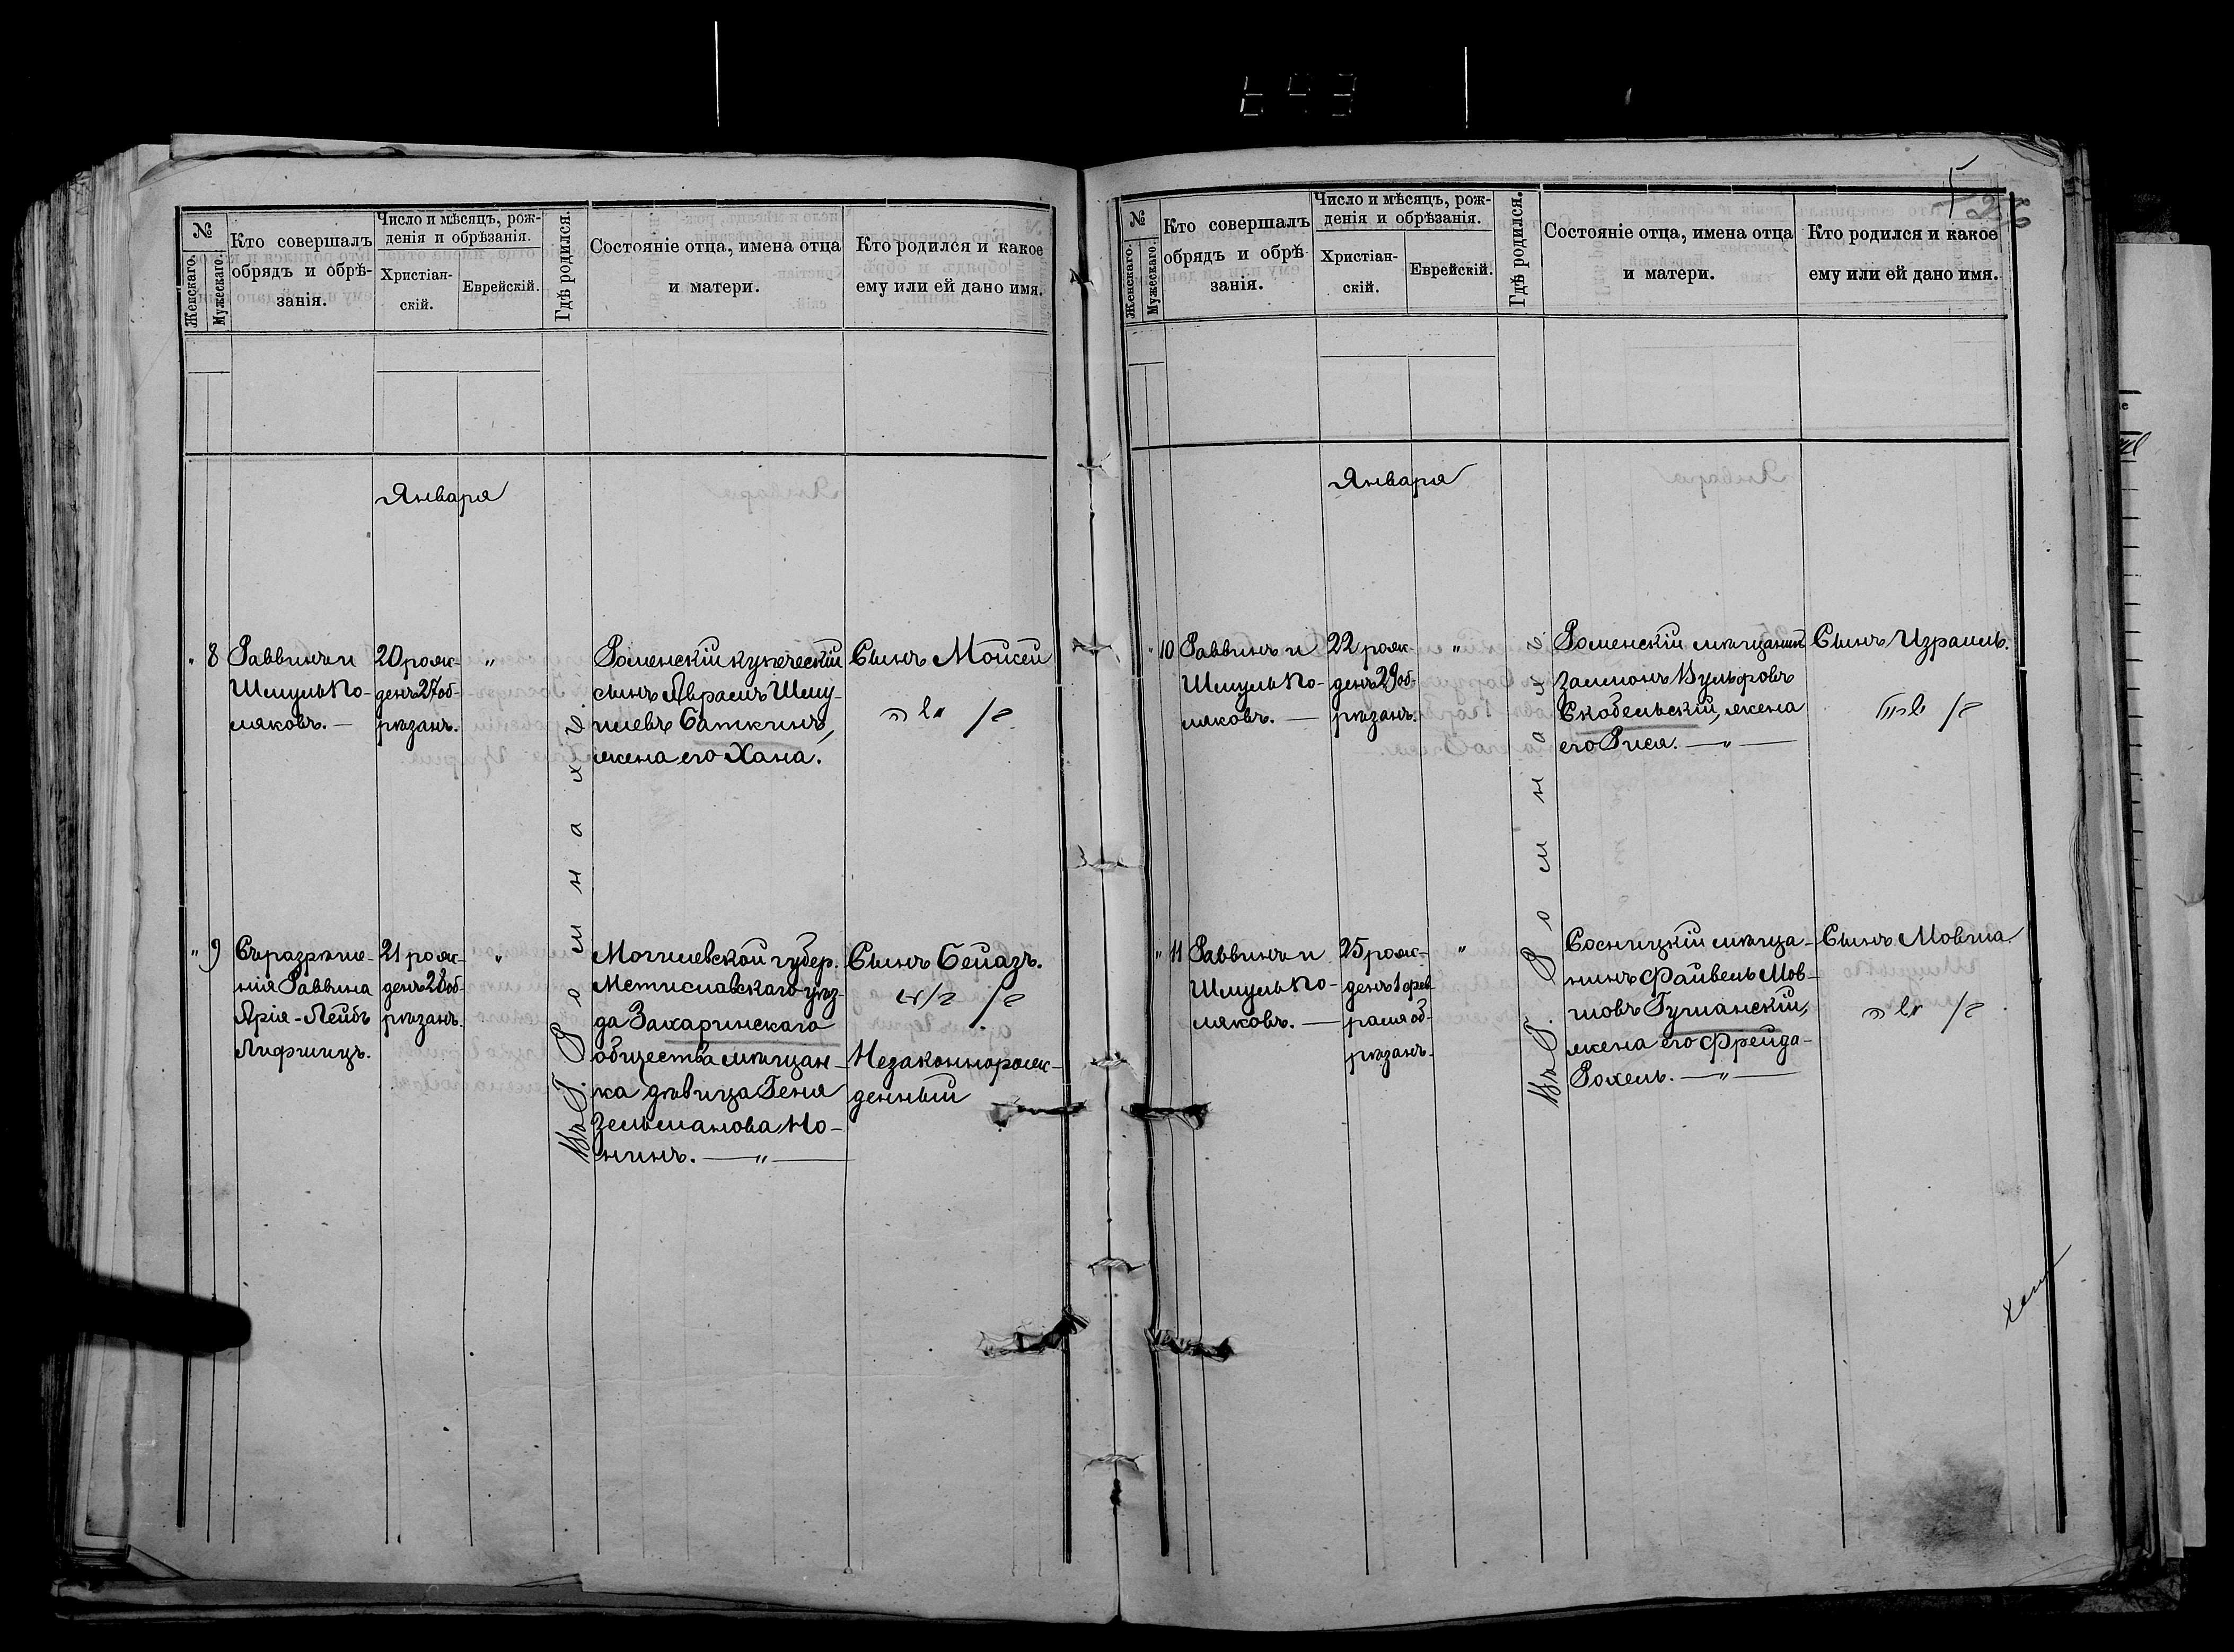 №
Женскаго.
Мужескаго.
Кто совершалъ
обрядъ и обрѣ-
занія.
Число и мѣсяцъ, рож-
денія и обрѣзанія.
Христіан-
скій.
Еврейскій.
Гдѣ родился.
Состояніе отца, имена отца
и матери.
Кто родился и какое
ему или ей дано имя.
Января
" 8
Раввинъ и
Шмуль По-
ляковъ. —
20 рож-
денъ 27 об-
рѣзанъ.
"
Роменскій купеческій
сынъ Авраамъ Шму-
илевъ Баткинъ,
жена его Хана.
Сынъ Мойсей
" 9
Съ разрѣше-
нія Раввина
Арія-Лейбъ
Лифшицъ.
21 рож-
денъ 28 об-
рѣзанъ.
"
Въ Г. Ромнахъ.
Могилевской губер.
Мстиславскаго уѣз-
да Захаринскаго
общества мѣщан-
ка дѣвица Геня
Зельманова Но-
нинъ. — " —
Сынъ Бейазъ.
Незаконнорож-
денный
№
Женскаго.
Мужескаго.
Кто совершалъ
обрядъ и обрѣ
занія.
Число и мѣсяцъ, рож-
денія и обрѣзанія.
Христіан-
скій.
Еврейскій.
Гдѣ родился.
Состояніе отца, имена отца
и матери.
Кто родился и какое
ему или ей дано имя.
Января
" 10
Раввинъ и
Шмуль По-
ляковъ. —
22 рож-
денъ 29 об-
рѣзанъ.
"
Роменскій мѣщанинъ
Залмонъ Вульфовъ
Скобельскій, жена
его Рися. — " —
Сынъ Израиль.
" 11
Раввинъ и
Шмуль По-
ляковъ. —
25 рож-
денъ 1 фев
раля об-
рѣзанъ.
"
Въ Г. Ромнахъ
Сосницкій мѣща-
нинъ Файвель Мов-
шовъ Гуманскій,
жена его Фрейда-
Рохель. — " —
Сынъ Мовша.